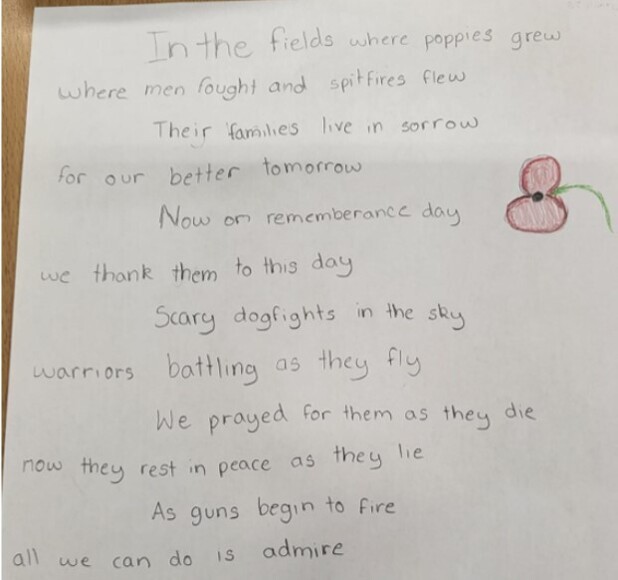 In the fields where poppies grew
where men fought and spitfires flew
Their families live in sorrow
for our better tomorrow
Now on rememberance day
we thank them to this day
Scary dogfights in the sky
warriors battling as they fly
We prayed for them as they die
now they rest in peace as they lie
As guns begin to fire
all we can do is admire